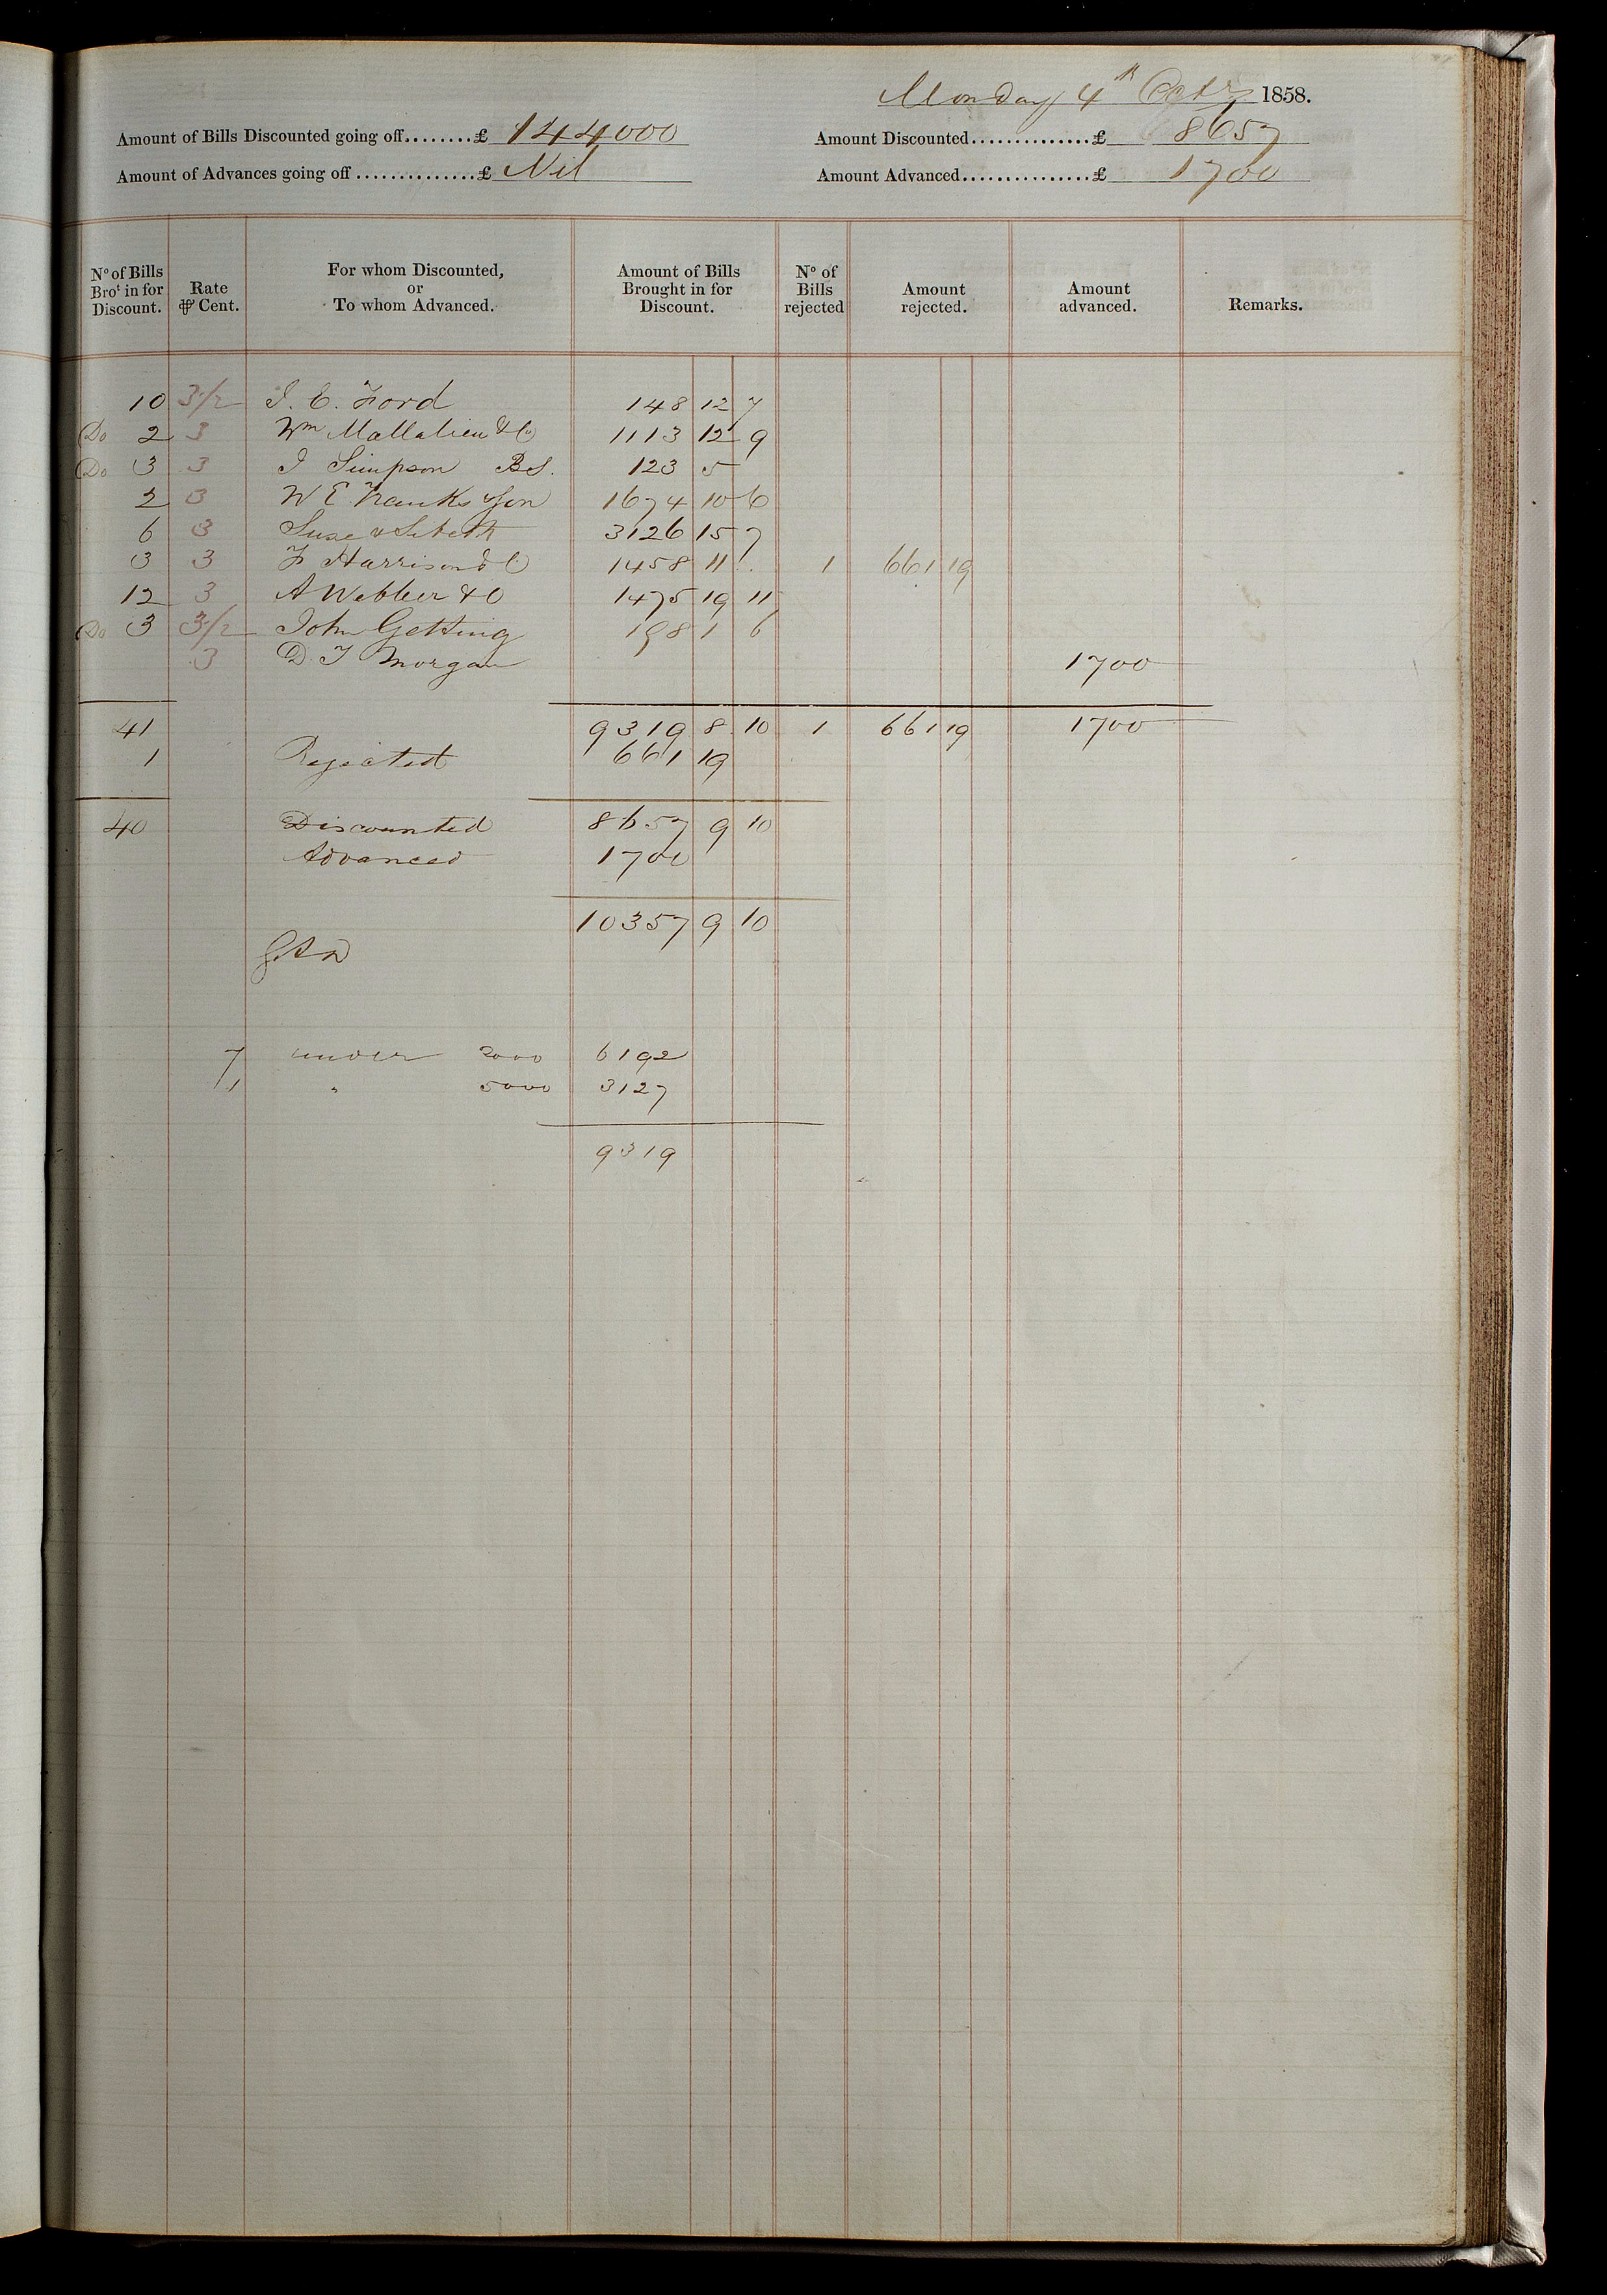 Monday 4th Octr 1858.
Amount of Bills Discounted going off........£ 144000 Amount Discounted..............£ 8657
Amount of Advances going off..............£ Nil Amount Advanced...............£ 1700
No of Bills Brot in for Discount. Rate ⅌ Cent. For whom Discounted, or To whom Advanced. Amount of Bills Brought in for Discount. No of Bills rejected Amount rejected. Amount advanced. Remarks.
10 3½ I. E. Ford 148 12 7
Do 2 3 Wm Mallalieu & Co 1113 12 9
Do 3 3 I Simpson BS. 123 5
2 3 W E Franks & Son 1674 10 6
6 3 Suse & Sibeth 3126 15 7
3 3 F Harrison & Co 1458 11 .. 1 661 19
12 3 A Webber & Co 1475 19 11
Do 3 3½ John Getting 198 1 6
3 D. T Morgan 1700
41 9319 8 10 1 661 19 1700
1 Rejected 661 19
40 Discounted 8657 9 10
Advanced 1700
10357 9 10
7 under 2000 6192
1 " 5000 3127
9319